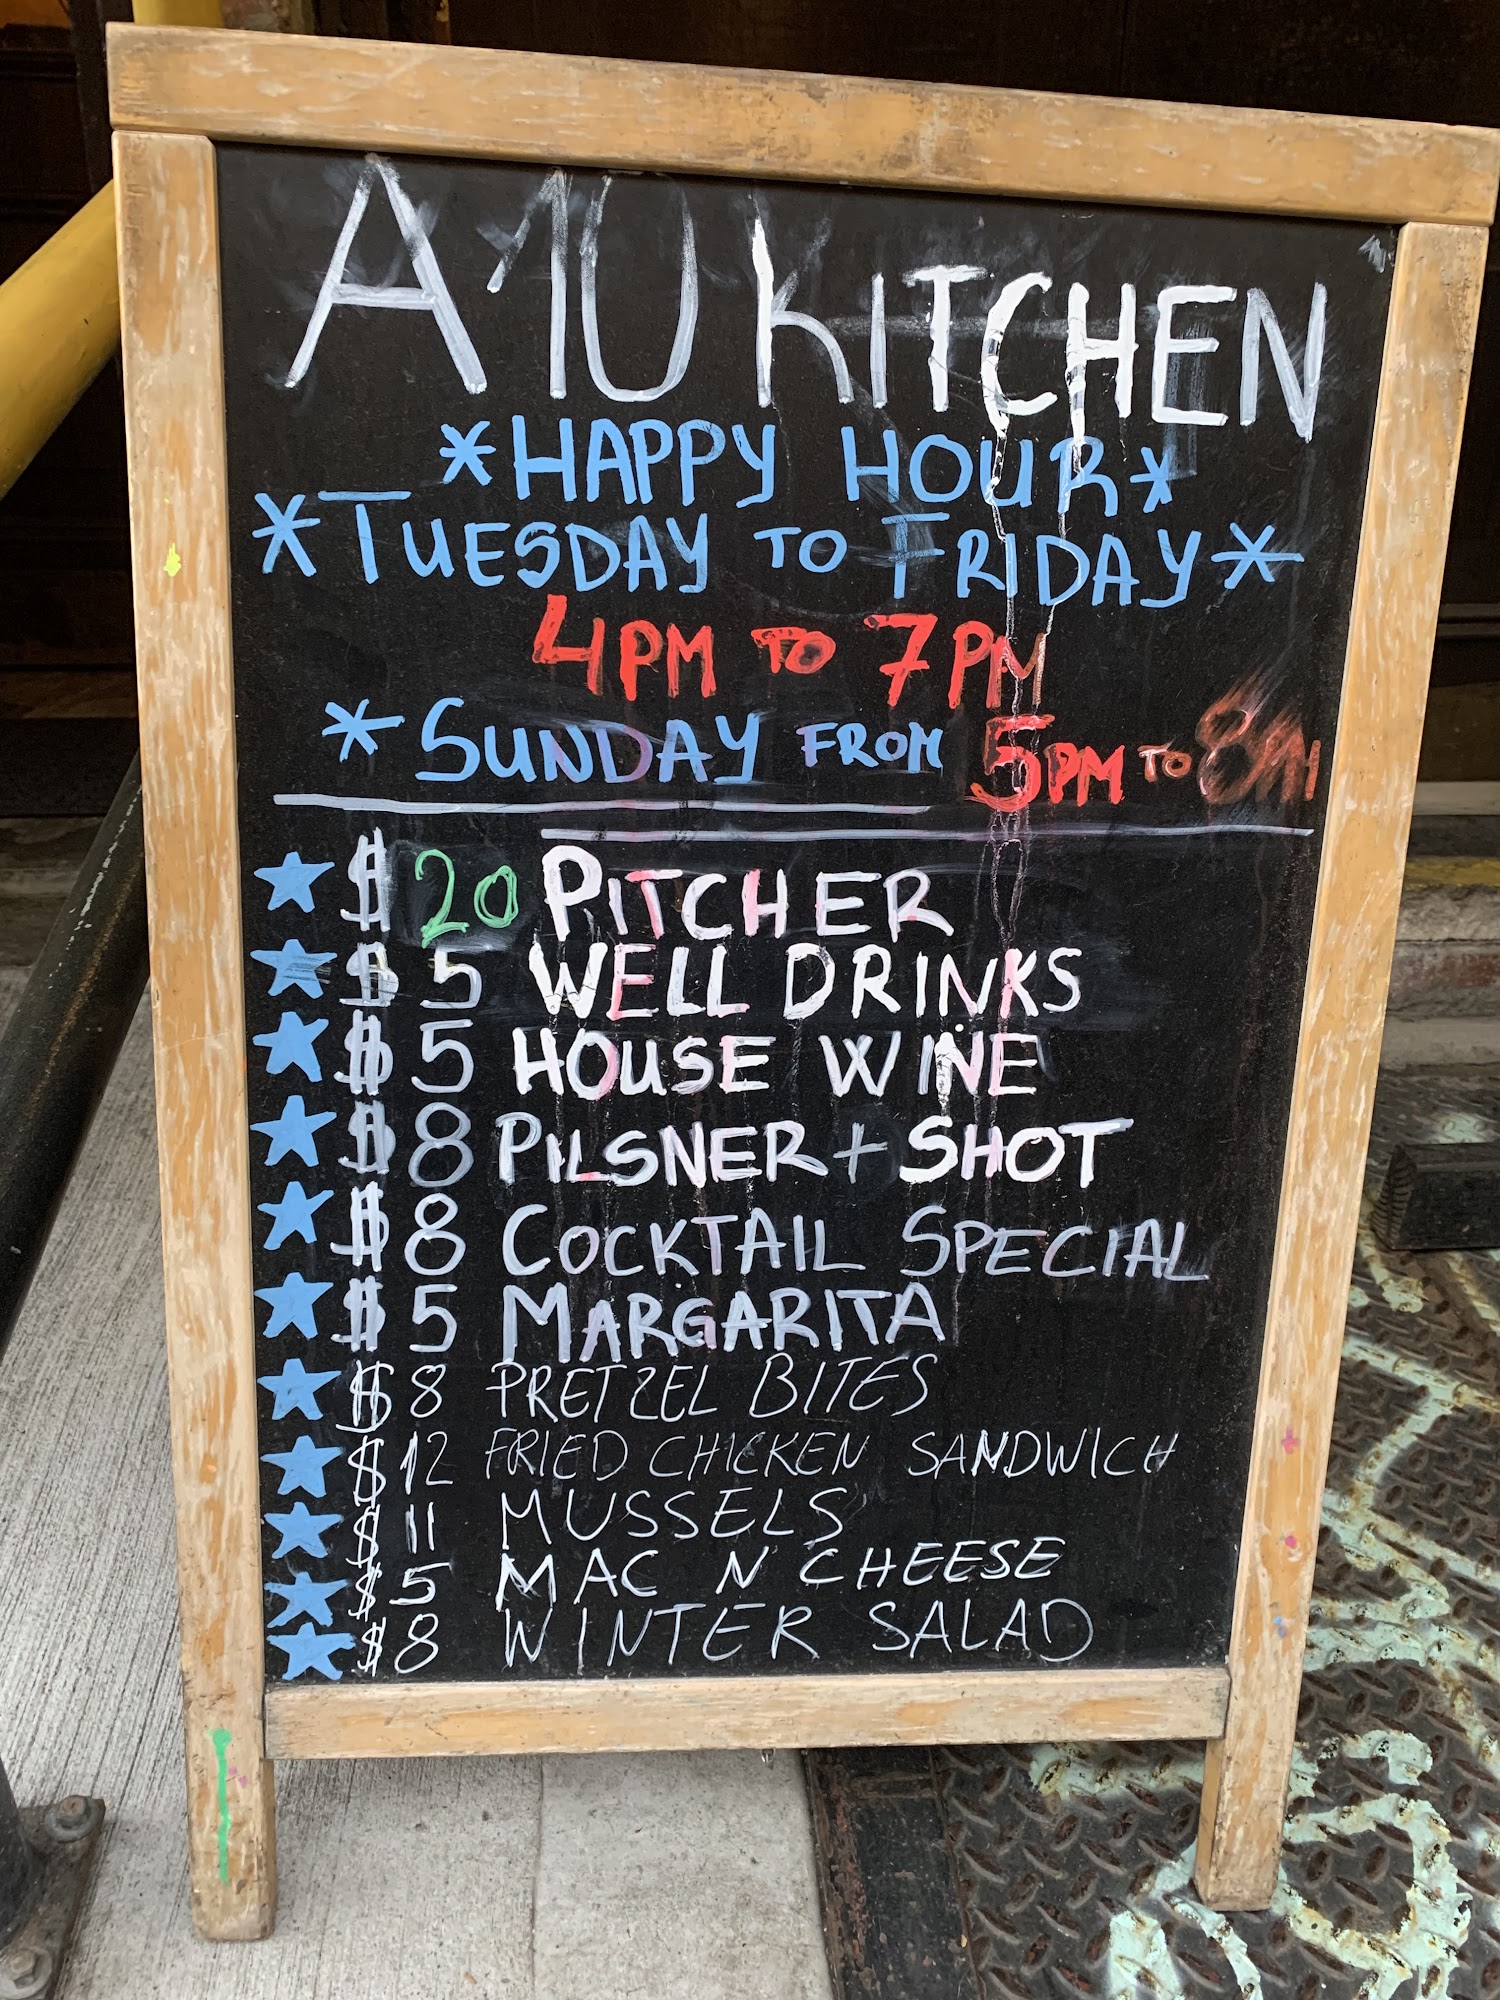 A10 KITCHEN
*HAPPY HOUR*
*TUESDAY TO FRIDAY*
4PM TO 7PM
*SUNDAY FROM 5PM TO 8PM
$20 PITCHER
$5 WELL DRINKS
$5 HOUSE WINE
$8 PILSNER + SHOT
$8 COCKTAIL SPECIAL
$5 MARGARITA
$8 PRETZEL BITES
$12 FRIED CHICKEN SANDWICH
$11 MUSSELS
$5 MAC N CHEESE
$8 WINTER SALAD